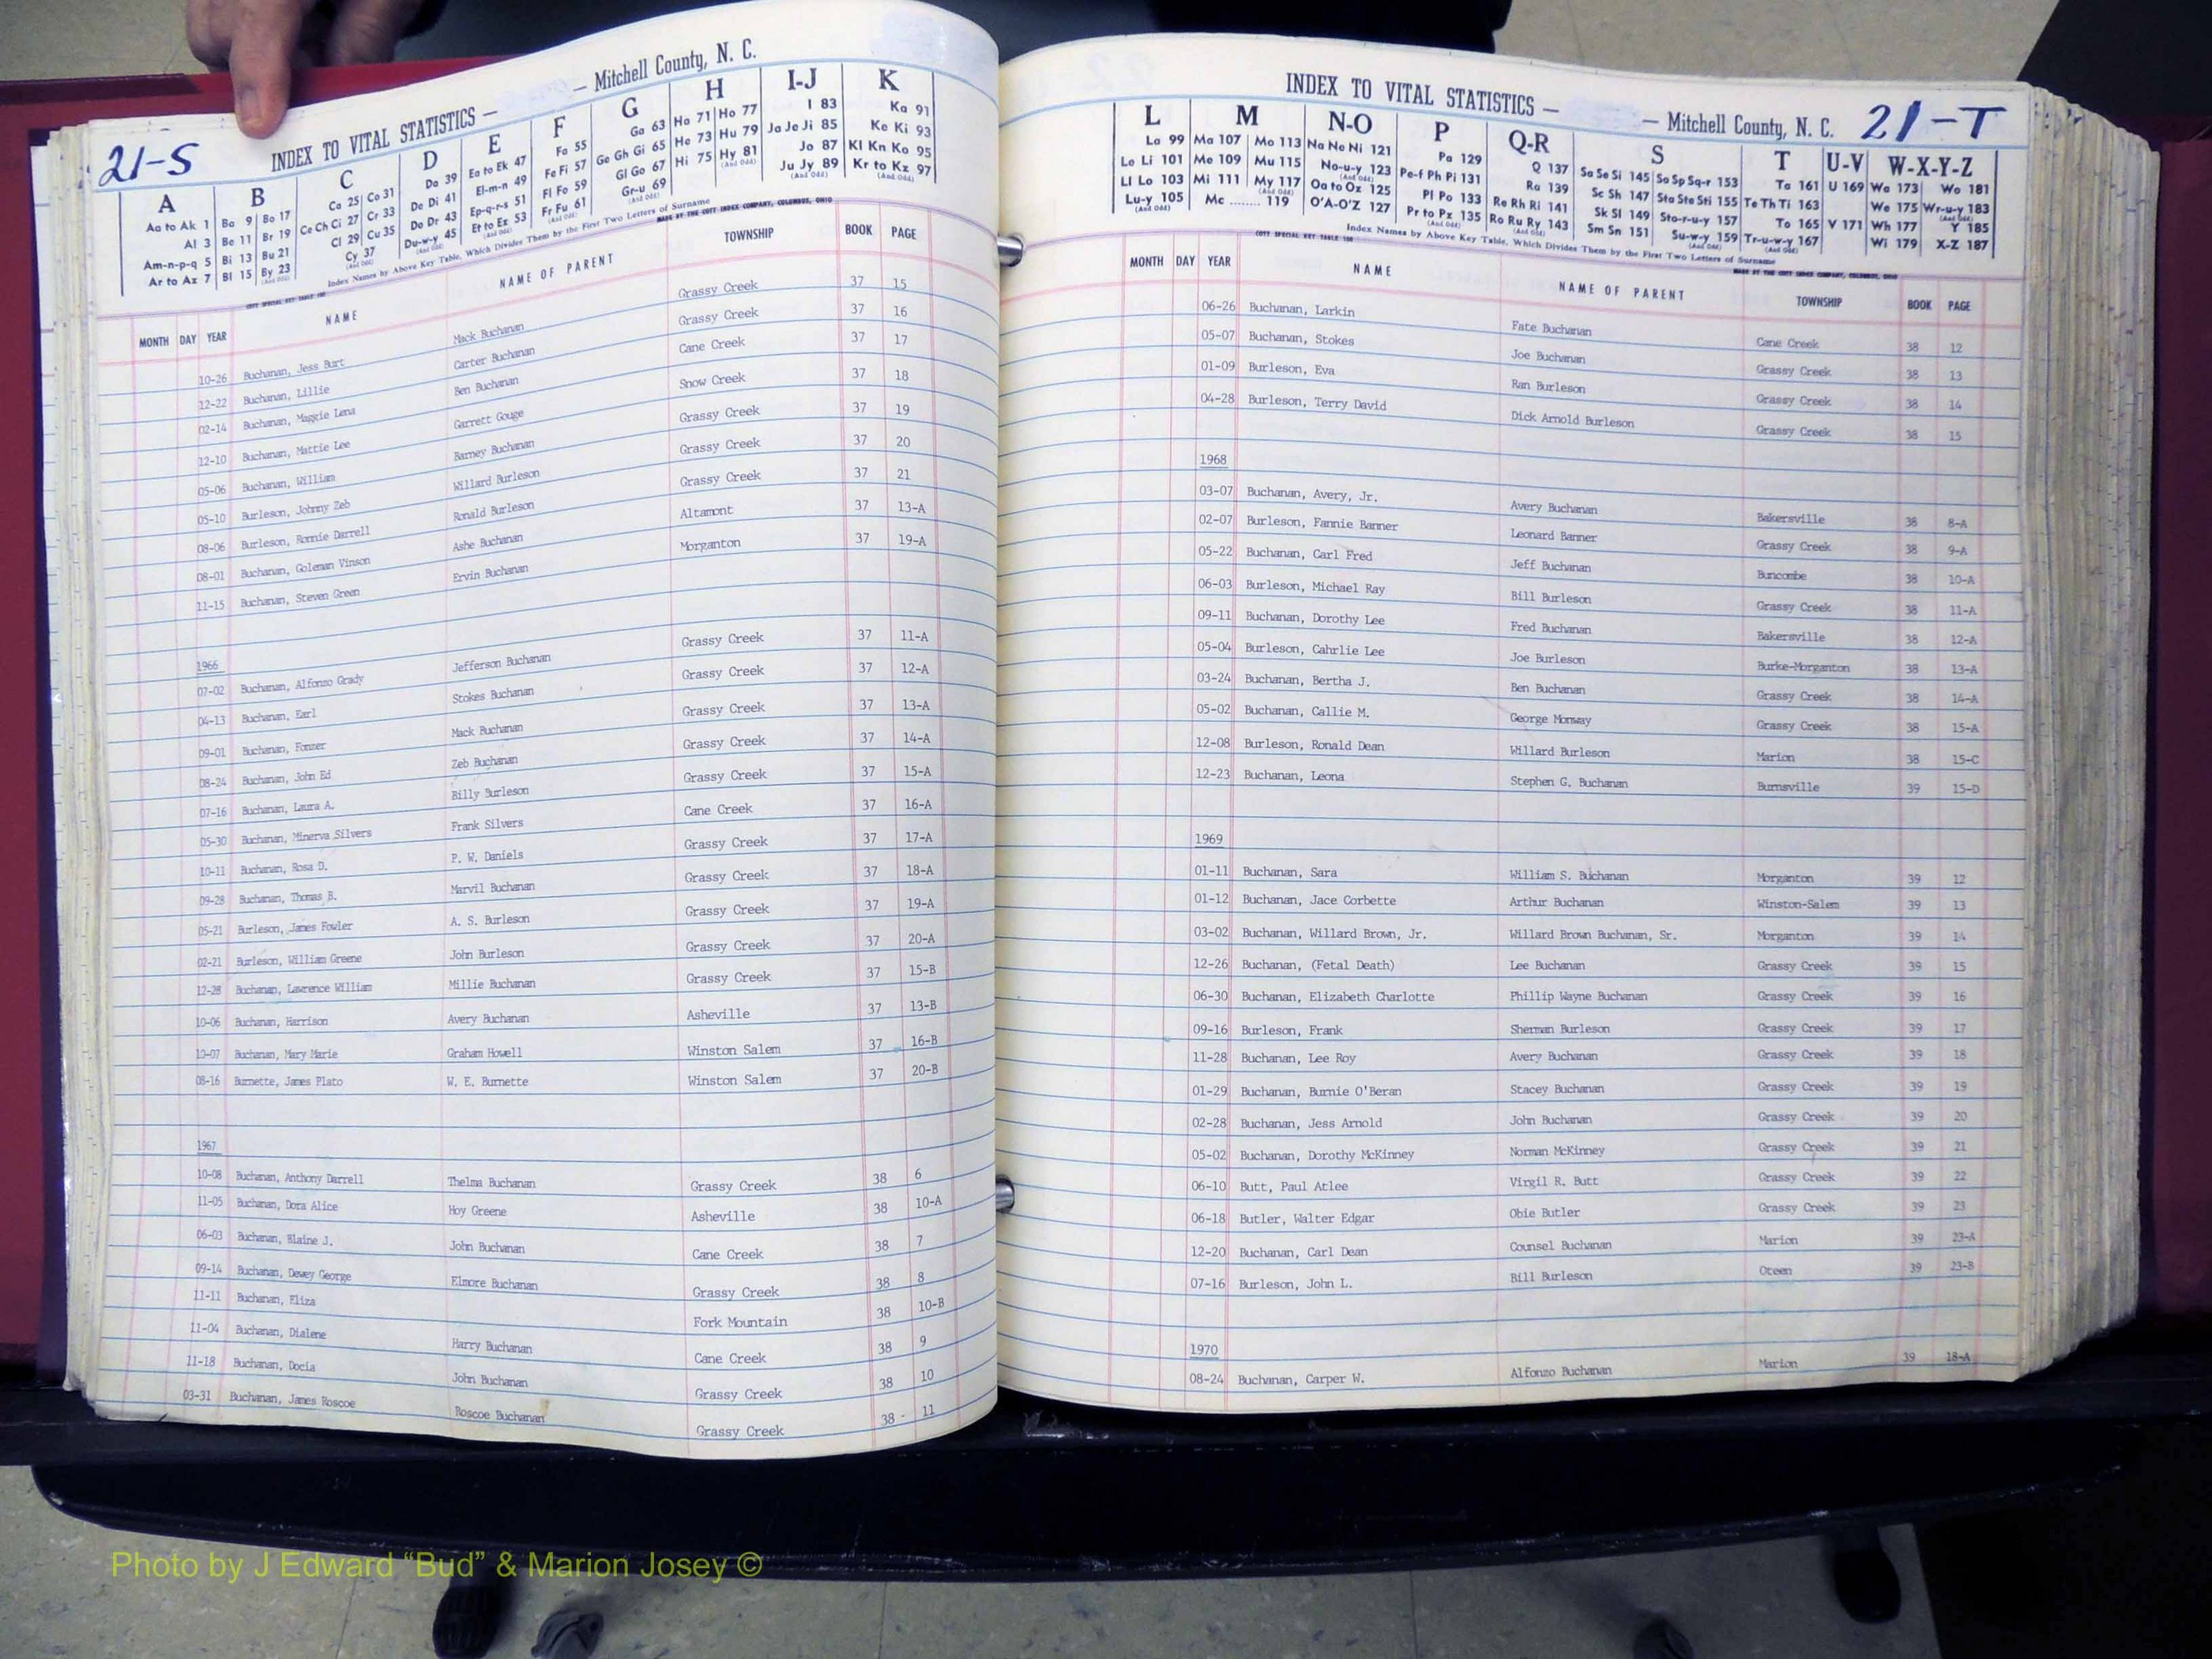 21-S
INDEX TO VITAL STATISTICS — — Mitchell County, N. C.
A B C D E F G H I-J K
Aa to Ak 1 Ba 9 Bo 17 Ca 25 Co 31 Da 39 Ea to Ek 47 Fa 55 Ga 63 Ha 71 Ho 77 I 83 Ka 91
Al 3 Be 11 Br 19 Ce Ch Ci 27 Cr 33 De Di 41 El-m-n 49 Fe Fi 57 Ge Gh Gi 65 He 73 Hu 79 Ja Je Ji 85 Ke Ki 93
Am-n-p-q 5 Bi 13 Bu 21 Cl 29 Cu 35 Do Dr 43 Ep-q-r-s 51 Fl Fo 59 Gl Go 67 Hi 75 Hy 81 Jo 87 Kl Kn Ko 95
Ar to Az 7 Bl 15 By 23 Cy 37 Du-w-y 45 Et to Ez 53 Fr Fu 61 Gr-u 69 Ju Jy 89 Kr to Kz 97
Index Names by Above Key Table, Which Divides Them by the First Two Letters of Surname
COTT SPECIAL KEY TABLE 100 MADE BY THE COTT INDEX COMPANY, COLUMBUS, OHIO
MONTH DAY YEAR NAME NAME OF PARENT TOWNSHIP BOOK PAGE
10-26 Buchanan, Jess Burt Mack Buchanan Grassy Creek 37 15
12-22 Buchanan, Lillie Carter Buchanan Grassy Creek 37 16
02-14 Buchanan, Maggie Lena Ben Buchanan Cane Creek 37 17
12-10 Buchanan, Mattie Lee Garrett Gouge Snow Creek 37 18
05-06 Buchanan, William Barney Buchanan Grassy Creek 37 19
05-10 Burleson, Johnny Zeb Willard Burleson Grassy Creek 37 20
08-06 Burleson, Ronnie Darrell Ronald Burleson Grassy Creek 37 21
08-01 Buchanan, Coleman Vinson Ashe Buchanan Altamont 37 13-A
11-15 Buchanan, Steven Green Ervin Buchanan Morganton 37 19-A
1966
07-02 Buchanan, Alfonzo Grady Jefferson Buchanan Grassy Creek 37 11-A
04-13 Buchanan, Earl Stokes Buchanan Grassy Creek 37 12-A
09-01 Buchanan, Fonzer Mack Buchanan Grassy Creek 37 13-A
08-24 Buchanan, John Ed Zeb Buchanan Grassy Creek 37 14-A
07-16 Buchanan, Laura A. Billy Burleson Grassy Creek 37 15-A
05-30 Buchanan, Minerva Silvers Frank Silvers Cane Creek 37 16-A
10-11 Buchanan, Rosa D. P. W. Daniels Grassy Creek 37 17-A
09-28 Buchanan, Thomas B. Marvil Buchanan Grassy Creek 37 18-A
05-21 Burleson, James Fowler A. S. Burleson Grassy Creek 37 19-A
02-21 Burleson, William Greene John Burleson Grassy Creek 37 20-A
12-28 Buchanan, Lawrence William Millie Buchanan Grassy Creek 37 15-B
10-06 Buchanan, Harrison Avery Buchanan Asheville 37 13-B
10-07 Buchanan, Mary Marie Graham Howell Winston Salem 37 16-B
08-16 Burnette, James Plato W. E. Burnette Winston Salem 37 20-B
1967
10-08 Buchanan, Anthony Darrell Thelma Buchanan Grassy Creek 38 6
11-05 Buchanan, Dora Alice Hoy Greene Asheville 38 10-A
06-03 Buchanan, Blaine J. John Buchanan Cane Creek 38 7
09-14 Buchanan, Dewey George Elmore Buchanan Grassy Creek 38 8
11-11 Buchanan, Eliza Fork Mountain 38 10-B
11-04 Buchanan, Dialene Harry Buchanan Cane Creek 38 9
11-18 Buchanan, Docia John Buchanan Grassy Creek 38 10
03-31 Buchanan, James Roscoe Roscoe Buchanan Grassy Creek 38 - 11
INDEX TO VITAL STATISTICS — — Mitchell County, N. C. 21-T
L M N-O P Q-R S T U-V W-X-Y-Z
La 99 Ma 107 Mo 113 Na Ne Ni 121 Pa 129 Q 137 Sa Se Si 145 So Sp Sq-r 153 Ta 161 U 169 Wa 173 Wo 181
Le Li 101 Me 109 Mu 115 No-u-y 123 Pe-f Ph Pi 131 Ra 139 Sc Sh 147 Sta Ste Sti 155 Te Th Ti 163 We 175 Wr-u-y 183
Ll Lo 103 Mi 111 My 117 Oa to Oz 125 Pl Po 133 Re Rh Ri 141 Sk Sl 149 Sto-r-u-y 157 To 165 V 171 Wh 177 Y 185
Lu-y 105 Mc ........ 119 O'A-O'Z 127 Pr to Pz 135 Ro Ru Ry 143 Sm Sn 151 Su-w-y 159 Tr-u-w-y 167 Wi 179 X-Z 187
Index Names by Above Key Table, Which Divides Them by the First Two Letters of Surname
COTT SPECIAL KEY TABLE 100 MADE BY THE COTT INDEX COMPANY, COLUMBUS, OHIO
MONTH DAY YEAR NAME NAME OF PARENT TOWNSHIP BOOK PAGE
06-26 Buchanan, Larkin Fate Buchanan Cane Creek 38 12
05-07 Buchanan, Stokes Joe Buchanan Grassy Creek 38 13
01-09 Burleson, Eva Ran Burleson Grassy Creek 38 14
04-28 Burleson, Terry David Dick Arnold Burleson Grassy Creek 38 15
1968
03-07 Buchanan, Avery, Jr. Avery Buchanan Bakersville 38 8-A
02-07 Burleson, Fannie Banner Leonard Banner Grassy Creek 38 9-A
05-22 Buchanan, Carl Fred Jeff Buchanan Buncombe 38 10-A
06-03 Burleson, Michael Ray Bill Burleson Grassy Creek 38 11-A
09-11 Buchanan, Dorothy Lee Fred Buchanan Bakersville 38 12-A
05-04 Burleson, Cahrlie Lee Joe Burleson Burke-Morganton 38 13-A
03-24 Buchanan, Bertha J. Ben Buchanan Grassy Creek 38 14-A
05-02 Buchanan, Callie M. George Morway Grassy Creek 38 15-A
12-08 Burleson, Ronald Dean Willard Burleson Marion 38 15-C
12-23 Buchanan, Leona Stephen G. Buchanan Burnsville 39 15-D
1969
01-11 Buchanan, Sara William S. Buchanan Morganton 39 12
01-12 Buchanan, Jace Corbette Arthur Buchanan Winston-Salem 39 13
03-02 Buchanan, Willard Brown, Jr. Willard Brown Buchanan, Sr. Morganton 39 14
12-26 Buchanan, (Fetal Death) Lee Buchanan Grassy Creek 39 15
06-30 Buchanan, Elizabeth Charlotte Phillip Wayne Buchanan Grassy Creek 39 16
09-16 Burleson, Frank Sherman Burleson Grassy Creek 39 17
11-28 Buchanan, Lee Roy Avery Buchanan Grassy Creek 39 18
01-29 Buchanan, Burnie O'Beran Stacey Buchanan Grassy Creek 39 19
02-28 Buchanan, Jess Arnold John Buchanan Grassy Creek 39 20
05-02 Buchanan, Dorothy McKinney Norman McKinney Grassy Creek 39 21
06-10 Butt, Paul Atlee Virgil R. Butt Grassy Creek 39 22
06-18 Butler, Walter Edgar Obie Butler Grassy Creek 39 23
12-20 Buchanan, Carl Dean Counsel Buchanan Marion 39 23-A
07-16 Burleson, John L. Bill Burleson Oteen 39 23-B
1970
08-24 Buchanan, Carper W. Alfonzo Buchanan Marion 39 18-A
Photo by J Edward “Bud” & Marion Josey ©